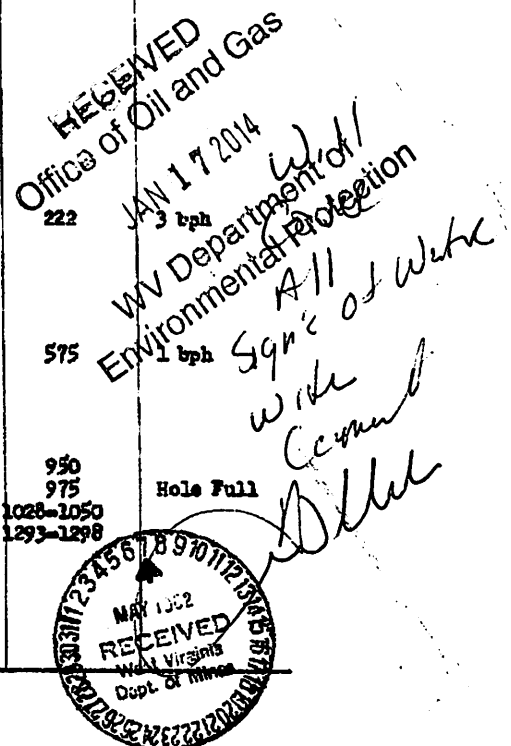 RECEIVED
Office of Oil and Gas
JAN 17 2014
WV Department of
Environmental Protection
222 3 bph
575 1 bph
950
975 Hole Full
1028-1050
1293-1298
Well
All
Sign's of Water
with
Cement
1 2 3 4 5 6 7 8 9 10 11 12 13 14 15 16 17 18 19 20 21 22 23 24 25 26 27 28 29 30 31
MAY 1962
RECEIVED
West Virginia
Dept. of Mines